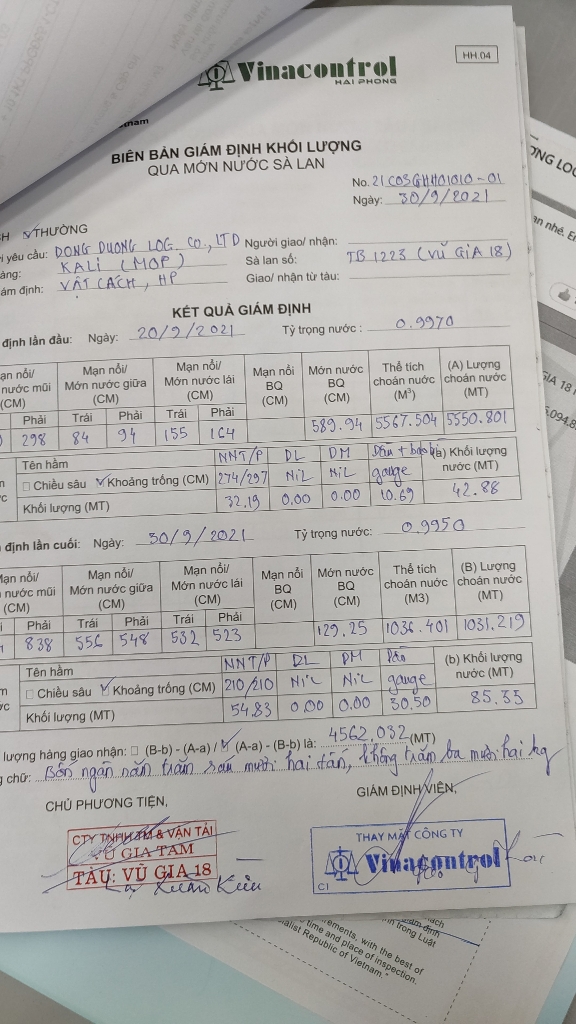 Vinacontrol
HAI PHONG
HH.04
BIÊN BẢN GIÁM ĐỊNH KHỐI LƯỢNG
QUA MỚN NƯỚC SÀ LAN
No. 21C03GHH01010-01
Ngày: 30/9/2021
THƯỜNG
yêu cầu: DONG DUONG LOG. CO., LTD Người giao/ nhận:
KALI (MOP) Sà lan số: TB 1223 (VŨ GIA 18)
định: VẬT CÁCH, HP Giao/ nhận từ tàu:
KẾT QUẢ GIÁM ĐỊNH
định lần đầu: Ngày: 20/9/2021 Tỷ trọng nước: 0.9970
nước mũi (CM) Mạn nổi/ Mớn nước giữa (CM) Mạn nổi/ Mớn nước lái (CM) Mạn nổi BQ (CM) Mớn nước BQ (CM) Thể tích choán nước (M³) (A) Lượng choán nước (MT)
Phải Trái Phải Trái Phải
298 84 94 155 164 589.94 5567.504 5550.801
Tên hầm NNT/P DL DM (a) Khối lượng nước (MT)
□ Chiều sâu ✓ Khoảng trống (CM) 274/297 NiL NiL gauge
Khối lượng (MT) 32.19 0.00 0.00 10.69 42.88
định lần cuối: Ngày: 30/9/2021 Tỷ trọng nước: 0.9950
nước mũi (CM) Mạn nổi/ Mớn nước giữa (CM) Mạn nổi/ Mớn nước lái (CM) Mạn nổi BQ (CM) Mớn nước BQ (CM) Thể tích choán nước (M3) (B) Lượng choán nước (MT)
Phải Trái Phải Trái Phải
838 556 548 532 523 129.25 1036.401 1031.219
Tên hầm NNT/P DL DM (b) Khối lượng nước (MT)
□ Chiều sâu ✓ Khoảng trống (CM) 210/210 NiL NiL gauge
Khối lượng (MT) 54.83 0.00 0.00 30.50 85.35
lượng hàng giao nhận: □ (B-b) - (A-a) / ✓ (A-a) - (B-b) là: 4562.032 (MT)
chữ: Bốn ngàn năm trăm sáu mươi hai tấn, không trăm ba mươi hai kg
CHỦ PHƯƠNG TIỆN, GIÁM ĐỊNH VIÊN,
CTY TNHH TM & VẬN TẢI
VŨ GIA TAM
TÀU: VŨ GIA 18
THAY MẶT CÔNG TY
Vinacontrol
C1
with the best of
time and place of inspection.
Republic of Vietnam."